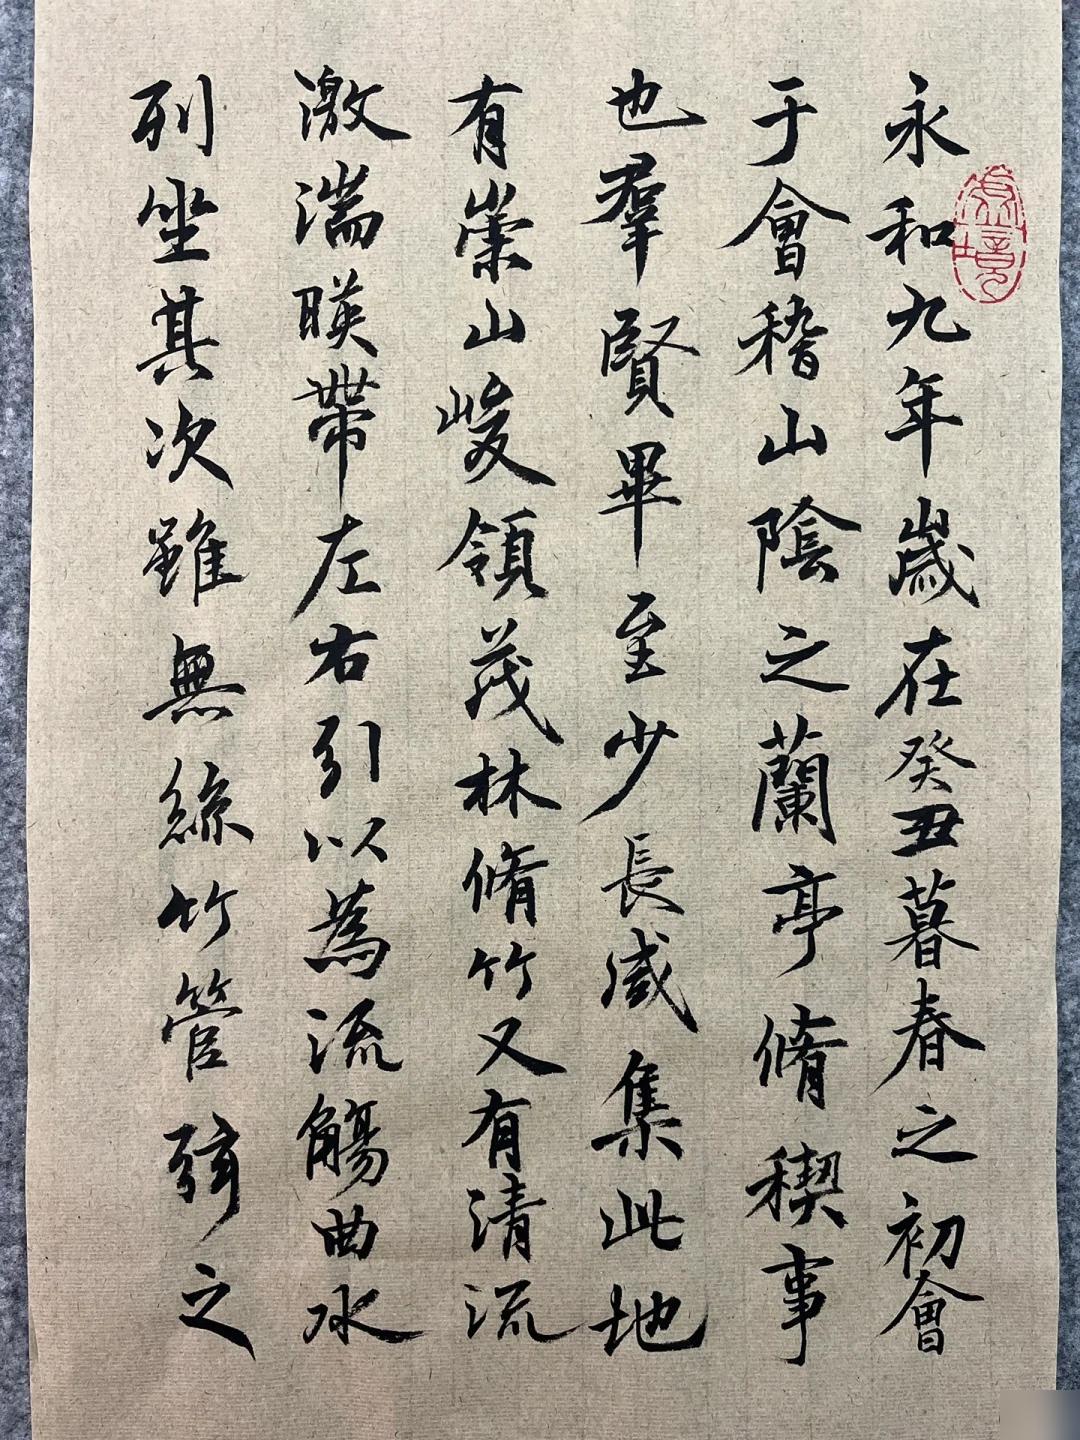 永和九年歲在癸丑暮春之初會
于會稽山陰之蘭亭脩稧事
也羣賢畢至少長咸集此地
有崇山峻領茂林脩竹又有清流
激湍暎帶左右引以為流觴曲水
列坐其次雖無絲竹管弦之